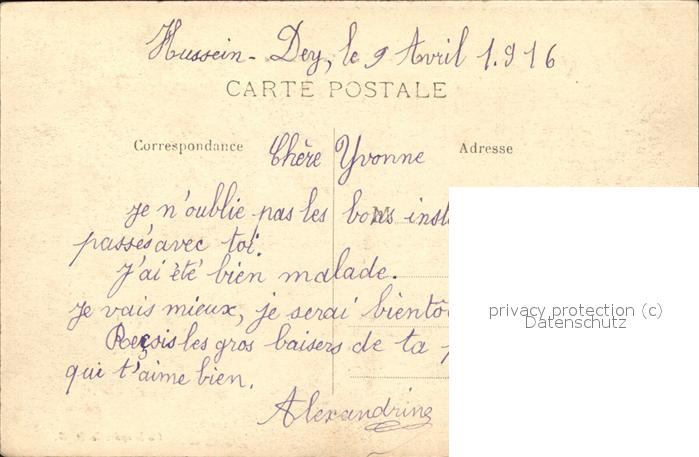 Hussein-Dey, le 9 Avril 1.916
CARTE POSTALE
Correspondance
Adresse
Chère Yvonne
je n'oublie pas les bons
M
passés avec toi.
J'ai été bien malade.
je vais mieux, je serai
Reçois les gros baisers de ta
qui t'aime bien.
Alexandrine
privacy protection (c)
Datenschutz